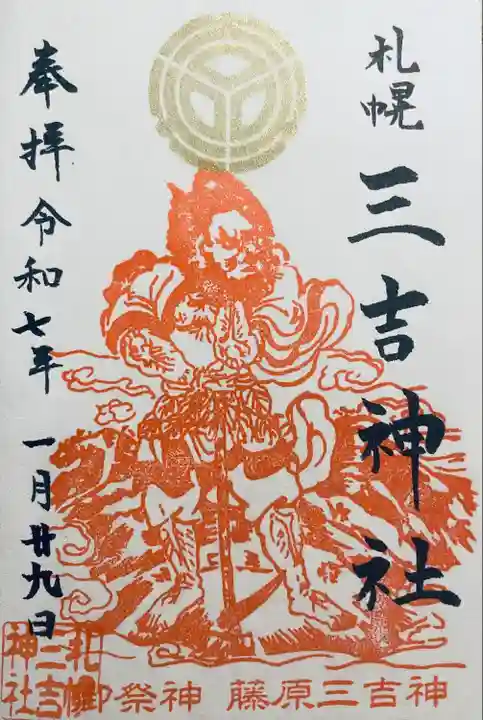 札幌 三吉神社
奉拝 令和七年 一月廿九日
札幌三吉神社
御祭神 藤原三吉神